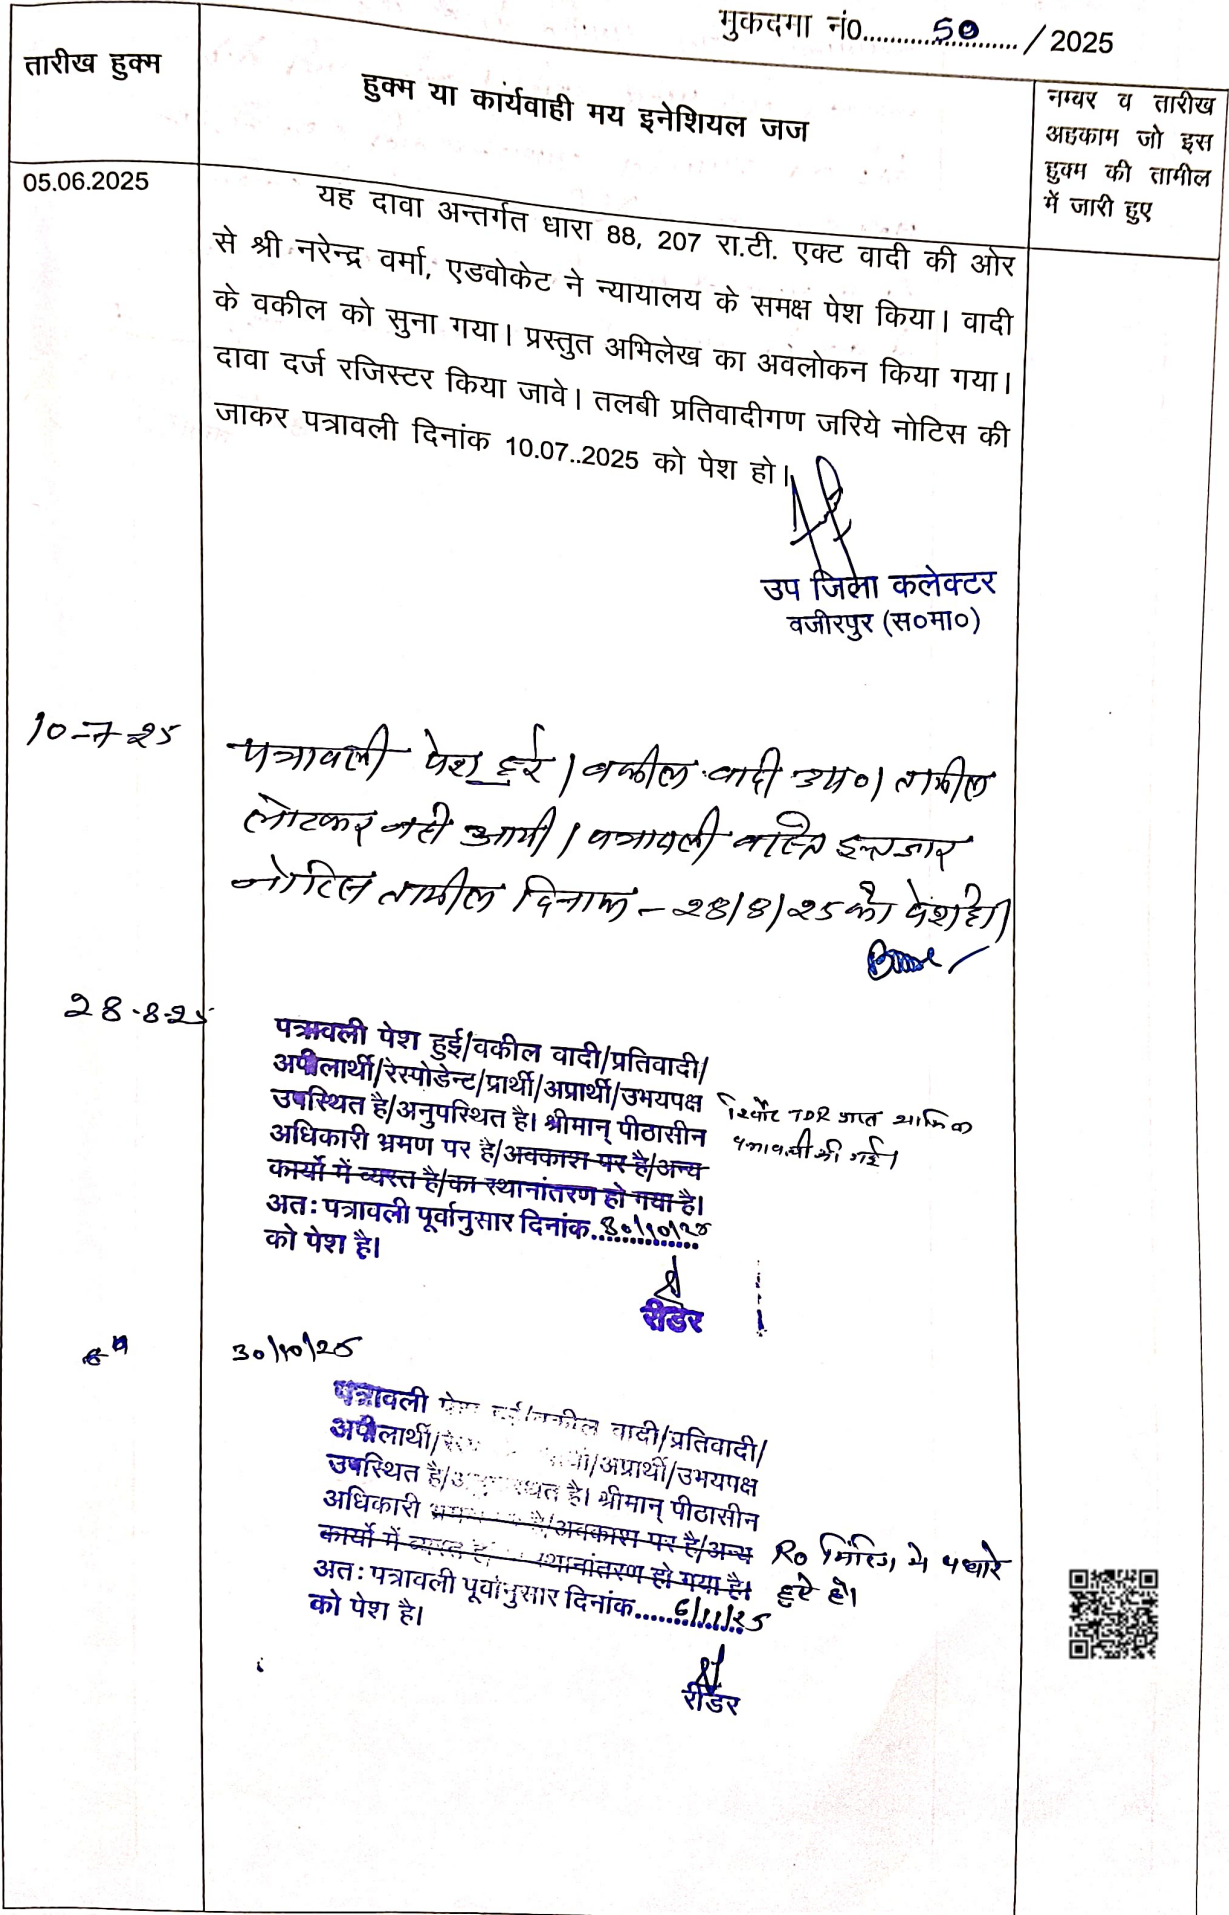 मुकदमा नं0.......50......./ 2025
तारीख हुक्म
हुक्म या कार्यवाही मय इनेशियल जज
नम्बर व तारीख
अहकाम जो इस
हुक्म की तामील
में जारी हुए
05.06.2025
यह दावा अन्तर्गत धारा 88, 207 रा.टी. एक्ट वादी की ओर
से श्री नरेन्द्र वर्मा, एडवोकेट ने न्यायालय के समक्ष पेश किया। वादी
के वकील को सुना गया। प्रस्तुत अभिलेख का अवलोकन किया गया।
दावा दर्ज रजिस्टर किया जावे। तलबी प्रतिवादीगण जरिये नोटिस की
जाकर पत्रावली दिनांक 10.07..2025 को पेश हो।
उप जिला कलेक्टर
वजीरपुर (स०मा०)
10-7-25
पत्रावली पेश हुई। वकील वादी उप०। तामील
लोटकर नही आयी। पत्रावली वास्ते इन्तजार
नोटिस तामील दिनांक - 28/8/25 को पेश हो।
28-8-25
पत्रावली पेश हुई/वकील वादी/प्रतिवादी/
अपीलार्थी/रेस्पोडेन्ट/प्रार्थी/अप्रार्थी/उभयपक्ष
उपस्थित है/अनुपस्थित है। श्रीमान् पीठासीन
अधिकारी भ्रमण पर है/अवकाश पर है/अन्य
कार्यो में व्यस्त है/का स्थानांतरण हो गया है।
अतः पत्रावली पूर्वानुसार दिनांक..30/10/25
को पेश है।
रिपोर्ट TDR प्राप्त शामिल
पत्रावली की गई।
रीडर
30/10/25
पत्रावली पेश हुई/वकील वादी/प्रतिवादी/
अपीलार्थी/ /अप्रार्थी/उभयपक्ष
उपस्थित है/अनुपस्थित है। श्रीमान् पीठासीन
अधिकारी भ्रमण पर है/अवकाश पर है/अन्य
कार्यो में व्यस्त है/ स्थानांतरण हो गया है।
अतः पत्रावली पूर्वानुसार दिनांक.....6/11/25
को पेश है।
RO मिटिंग में पधारे
हुऐ है।
रीडर